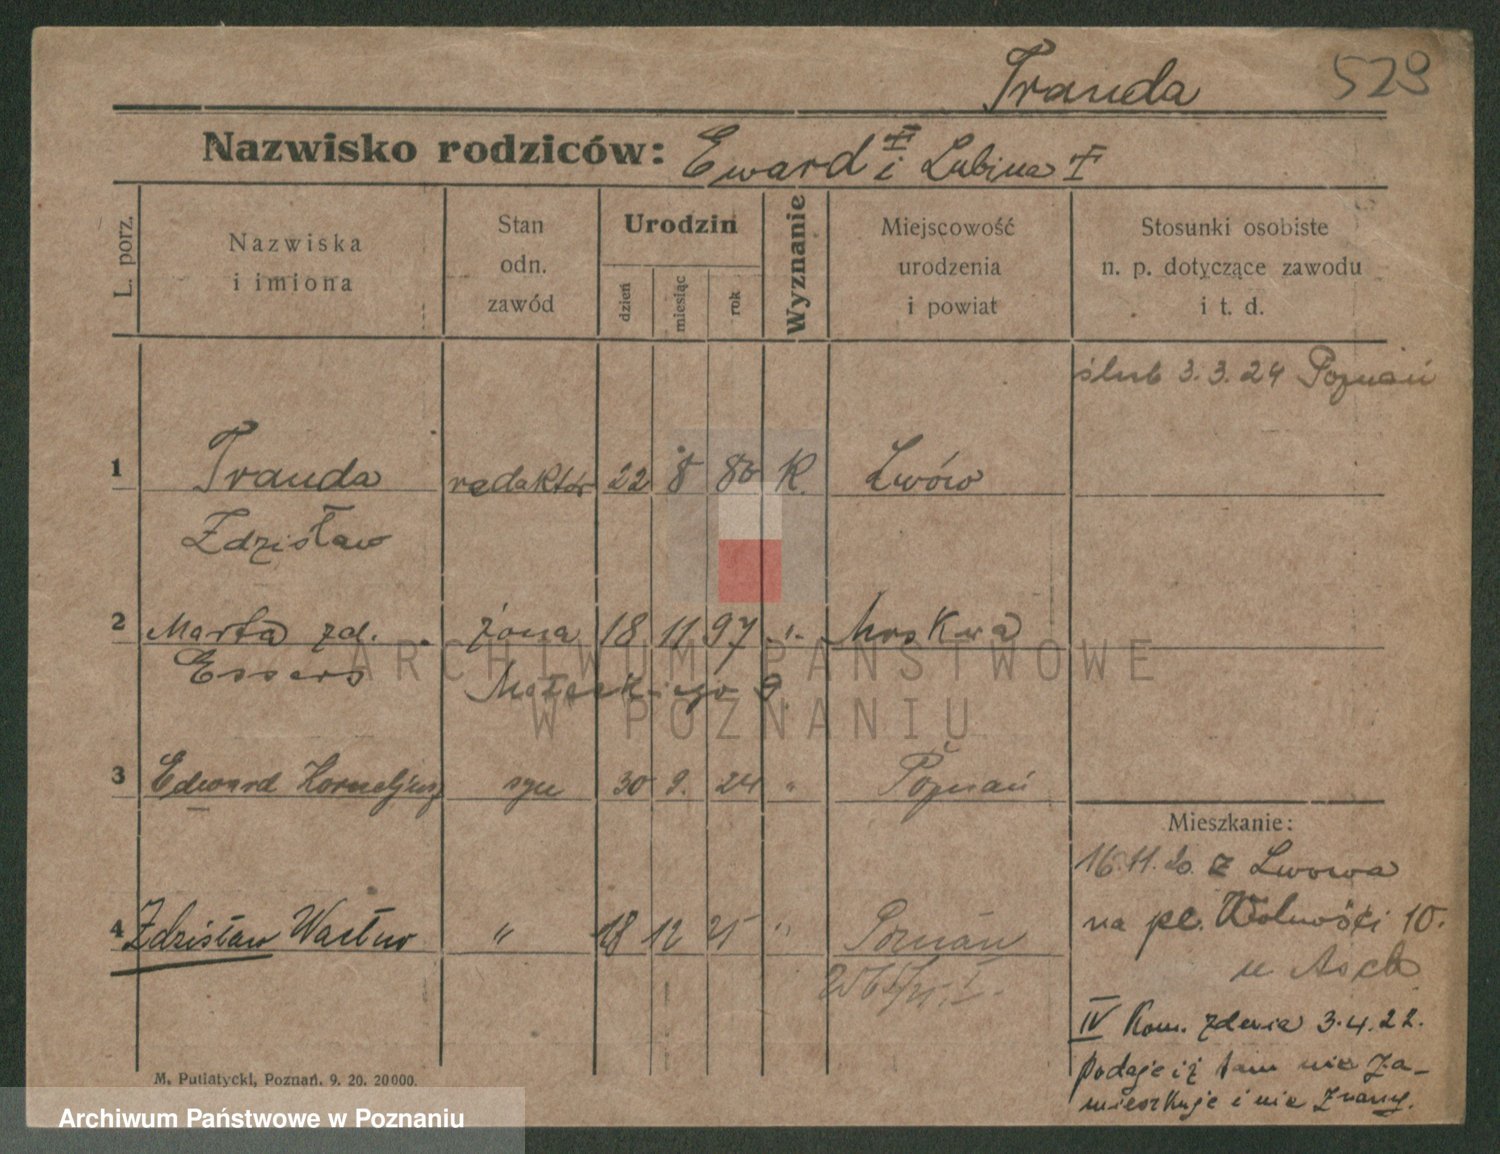 Tranda 529
Nazwisko rodziców: Eward i Lubina
L. porz.
Nazwiska
i imiona
Stan
odn.
zawód
Urodzin
dzień
miesiąc
rok
Wyznanie
Miejscowość
urodzenia
i powiat
Stosunki osobiste
n. p. dotyczące zawodu
i t. d.
ślub 3.3.24 Poznań
1 Tranda redaktór 22 8 80 K. Lwów
Zdzisław
2 Marta zd. żona 18 11 97 Moskwa
Essers Małeckiego 9.
3 Edward Korneljusz syn 30 9. 24 " Poznań
Mieszkanie:
16.11.20. z Lwowa
4 Zdzisław Wacław " 18 12 25 " Poznań
na pl. Wolności 10.
u Asch
IV Kom. 3.4.22.
podaje iż tam nie za-
mieszkuje i nie znany.
M. Putiatycki, Poznań. 9. 20. 20000.
ARCHIWUM PAŃSTWOWE
W POZNANIU
Archiwum Państwowe w Poznaniu